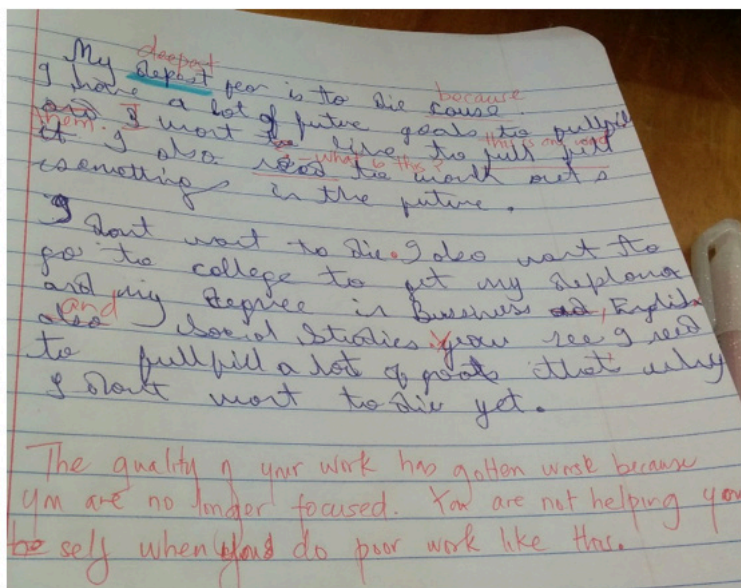 deepest
My depest fear is to die cause because
I have a lot of future goals to fullfil
them. I want to live to full fill this is one word
it I also need to work out s - what is this?
something in the future.
I dont want to die. I also want to
go to college to get my deploma
and my degree in Bussness ad, English
also and Social Studies you see I need
to fullfill a lot of goals that why
I dont want to die yet.
The quality of your work has gotten worse because
you are no longer focused. You are not helping you
self when you do poor work like this.